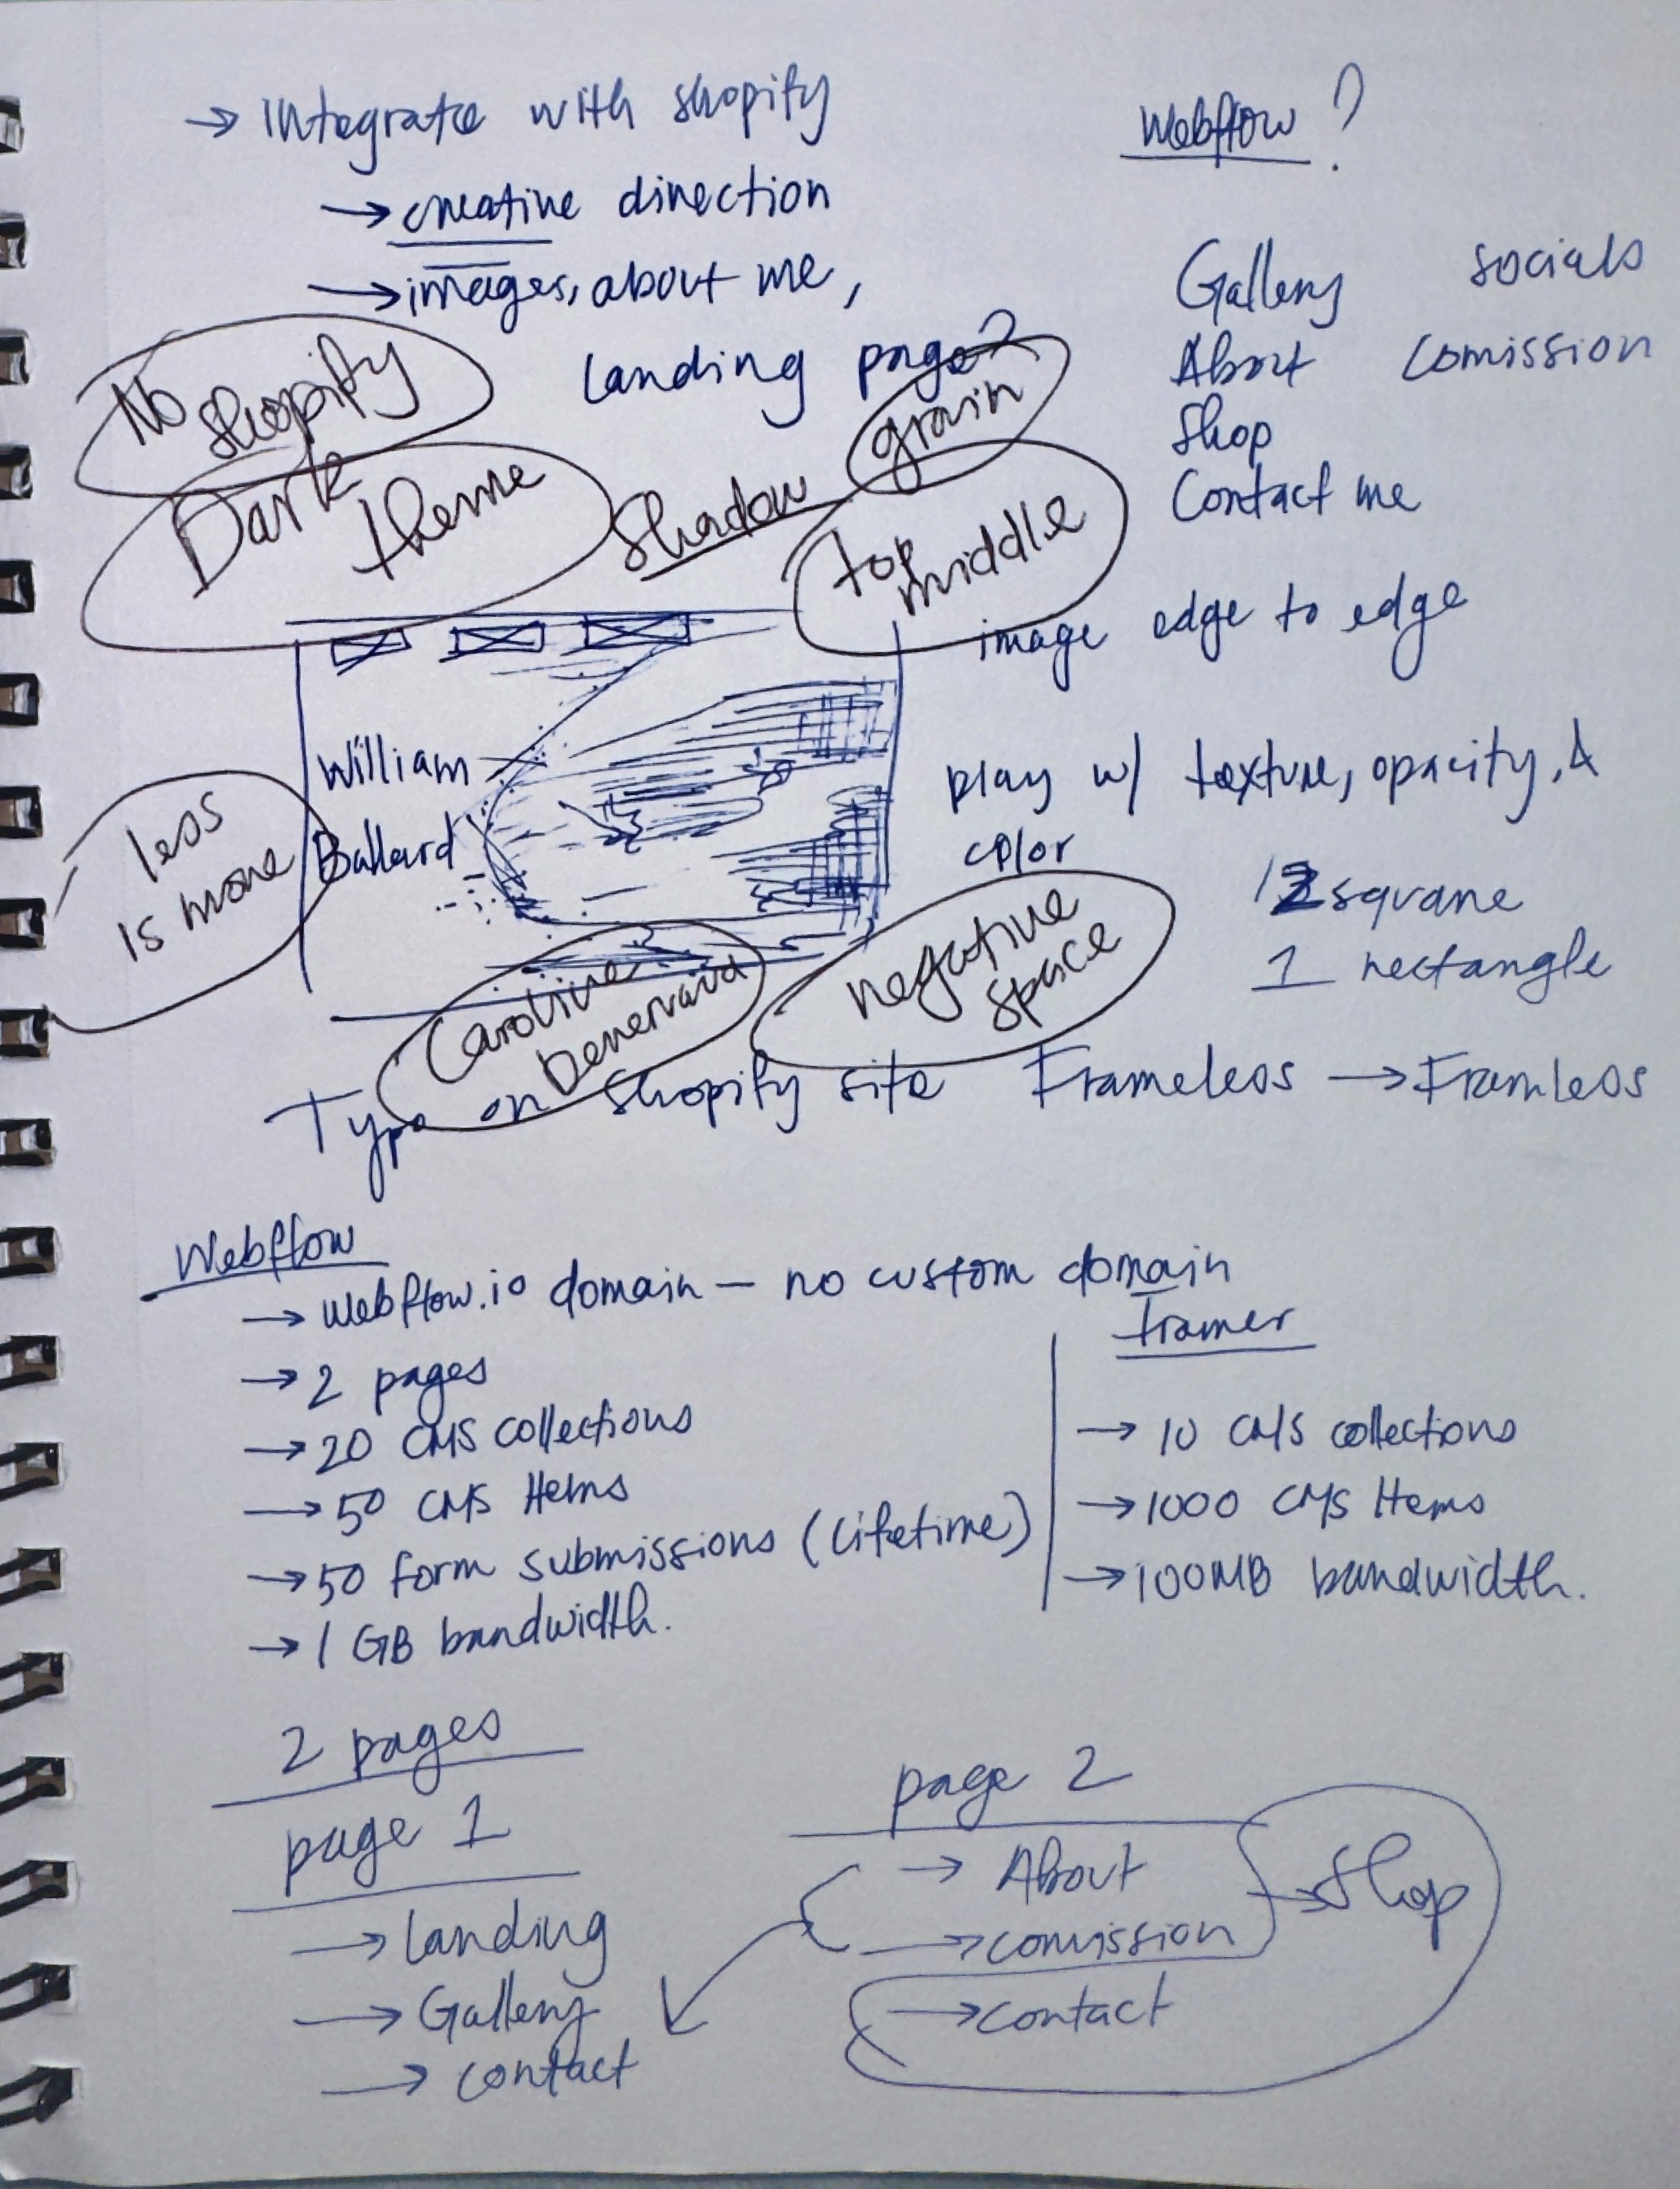 → Integrate with shopify
Webflow?
→ creative direction
→ images, about me,
landing page?
Gallery
socials
About
Comission
Shop
Contact me
No shopify
Dark theme
Shadow
grain
top middle
image edge to edge
William
Ballard
less
is more
play w/ texture, opacity, &
color
12 square
1 rectangle
Caroline
negative
space
Typo on shopify site
Frameless → Framless
Webflow
→ Webflow.io domain – no custom domain
→ 2 pages
→ 20 CMS collections
→ 50 CMS Items
→ 50 form submissions (Lifetime)
→ 1 GB bandwidth.
Framer
→ 10 CMS collections
→ 1000 CMS Items
→ 100MB bandwidth.
2 pages
page 1
→ Landing
→ Gallery
→ contact
page 2
→ About
→ comission
→ contact
→ Shop